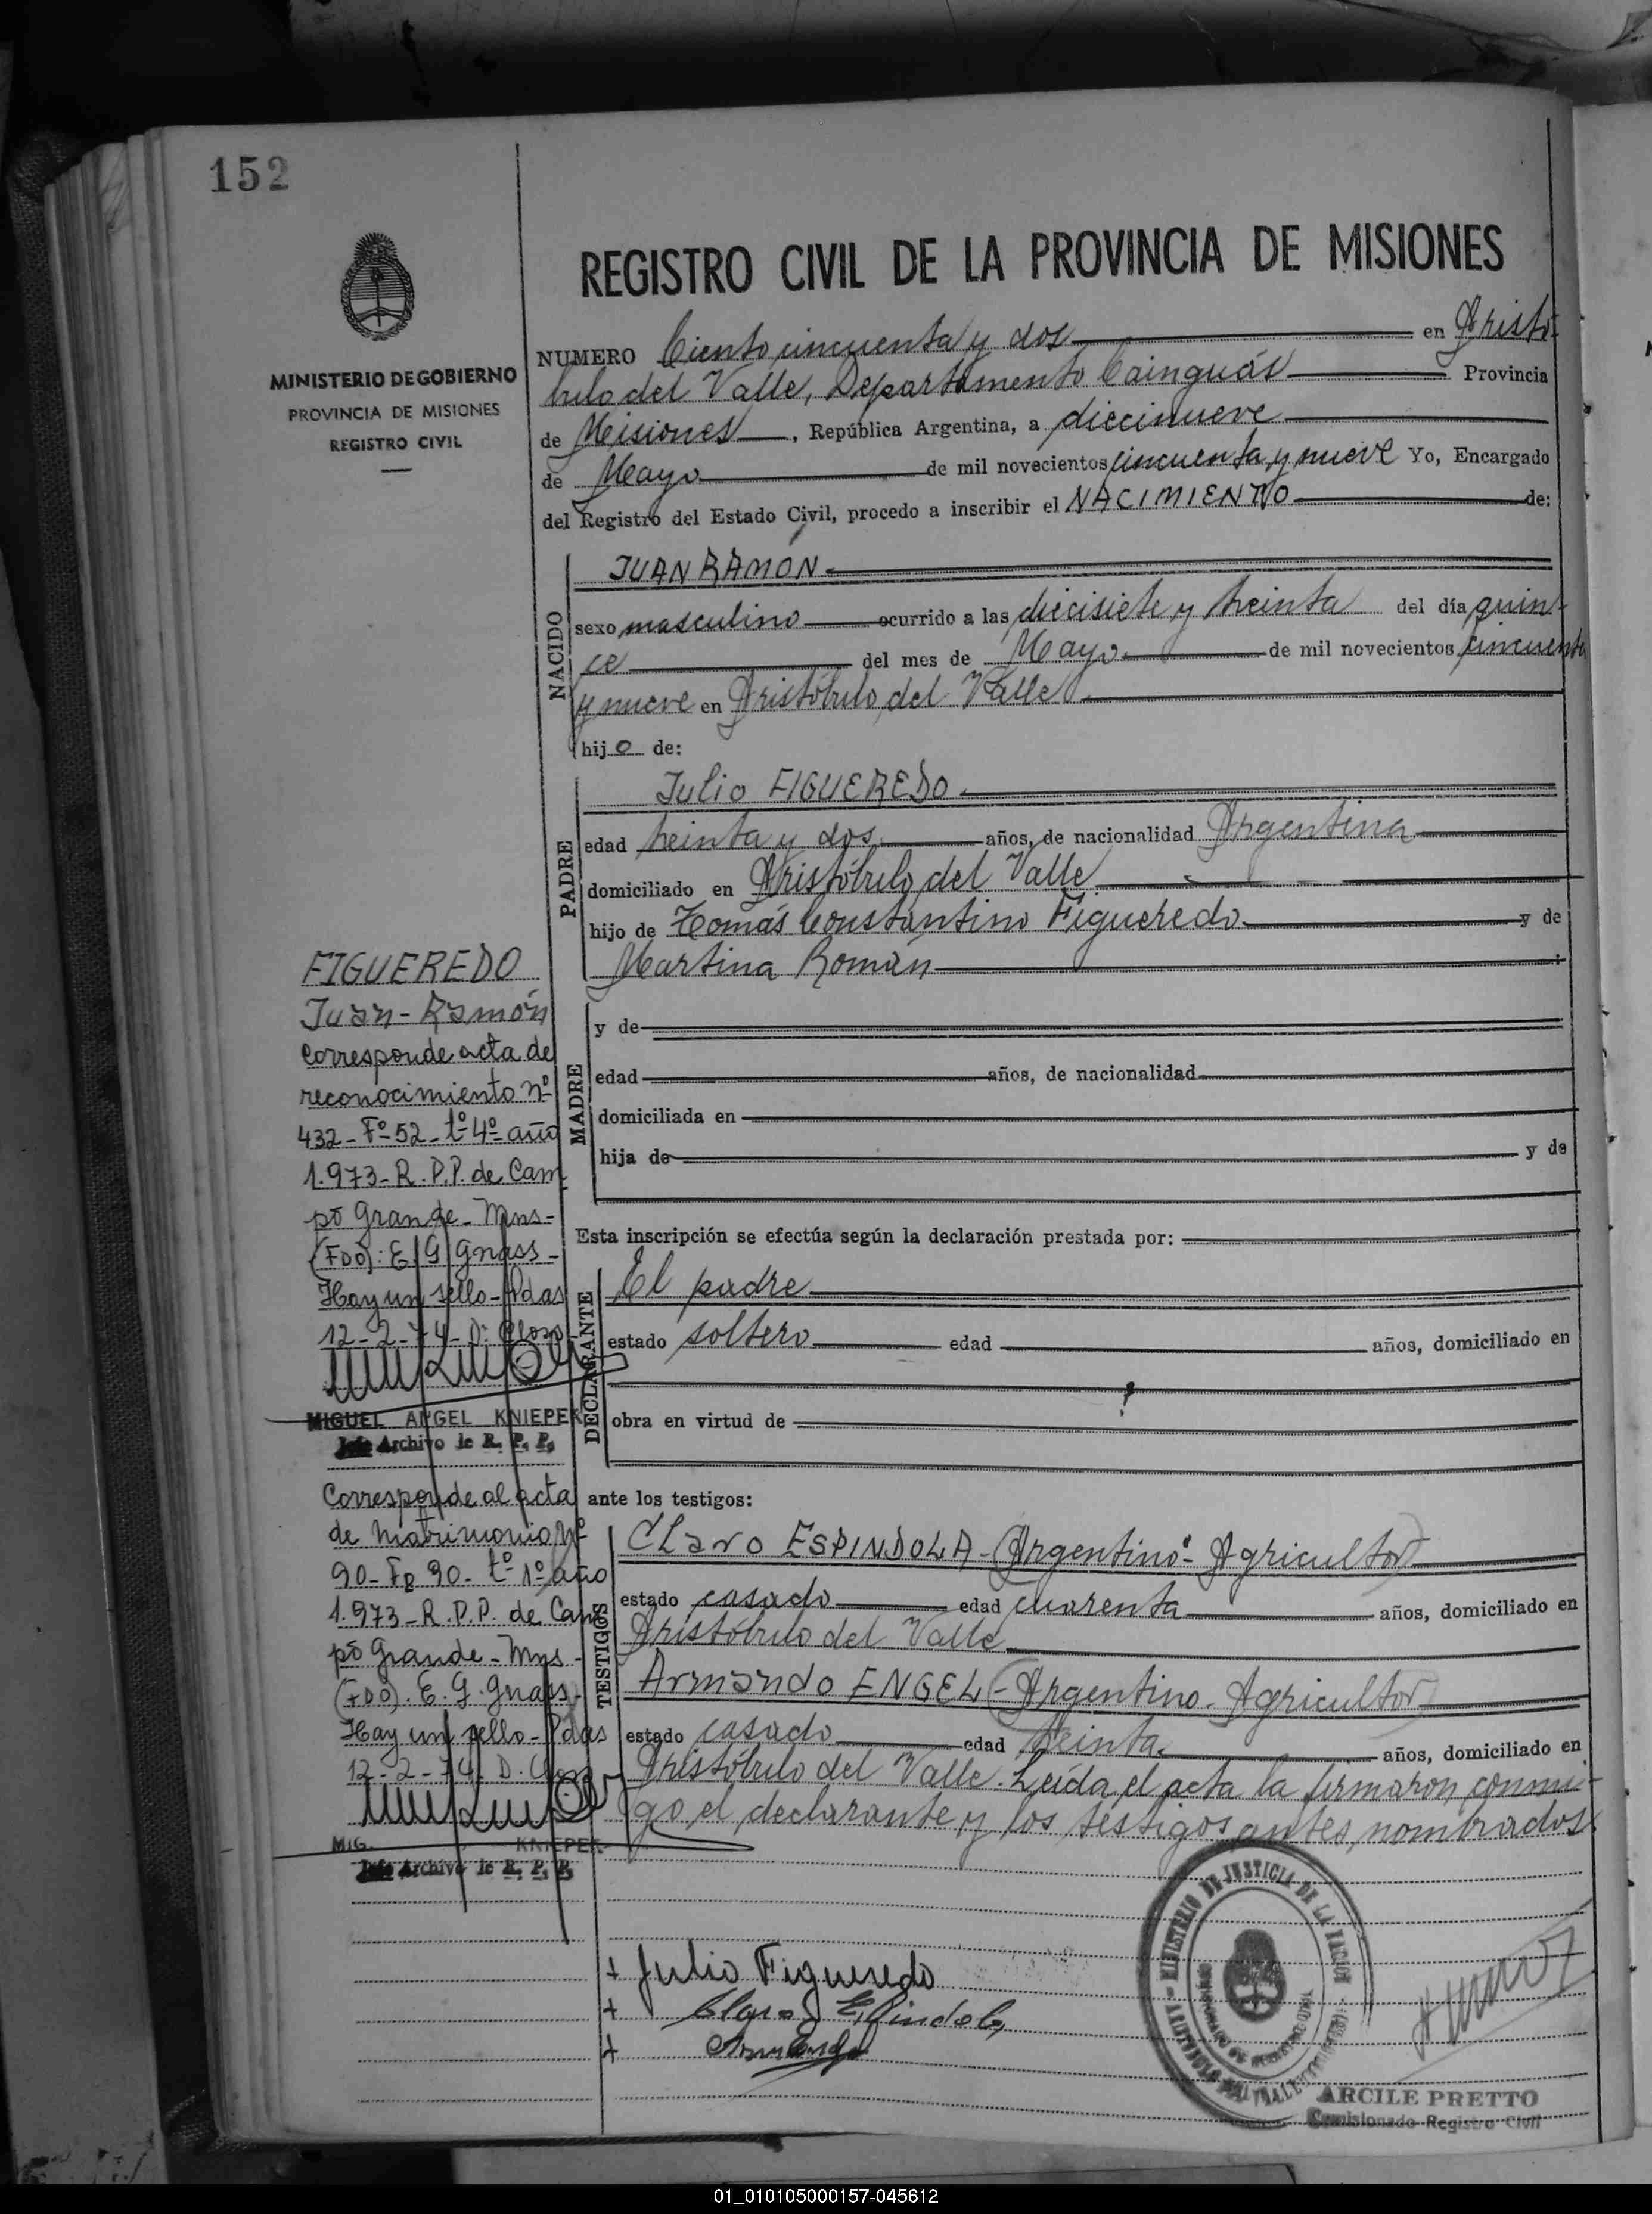 152
MINISTERIO DE GOBIERNO
PROVINCIA DE MISIONES
REGISTRO CIVIL
REGISTRO CIVIL DE LA PROVINCIA DE MISIONES
NUMERO Ciento cincuenta y dos en Aristó-
bulo del Valle, Departamento Cainguás Provincia
de Misiones, República Argentina, a diecinueve
de Mayo de mil novecientos cincuenta y nueve Yo, Encargado
del Registro del Estado Civil, procedo a inscribir el NACIMIENTO de:
NACIDO
JUAN RAMÓN
sexo masculino ocurrido a las diecisiete y treinta del día quin-
ce del mes de Mayo de mil novecientos cincuenta
y nueve en Aristóbulo del Valle
hijo de:
PADRE
Julio FIGUEREDO
edad treinta y dos años, de nacionalidad Argentina
domiciliado en Aristóbulo del Valle
hijo de Tomás Constantino Figueredo y de
Martina Román
MADRE
y de
edad años, de nacionalidad
domiciliada en
hija de y de
Esta inscripción se efectúa según la declaración prestada por:
DECLARANTE
El padre
estado soltero edad años, domiciliado en
obra en virtud de
ante los testigos:
TESTIGOS
Claro ESPINDOLA - (Argentino - Agricultor)
estado casado edad cuarenta años, domiciliado en
Aristóbulo del Valle
Armando ENGEL (- Argentino - Agricultor)
estado casado edad treinta años, domiciliado en
Aristóbulo del Valle. Leída el acta la firmaron conmi-
go el declarante y los testigos antes nombrados
+ Julio Figueredo
+ Claro Espindola
+
MINISTERIO DE JUSTICIA DE LA NACION
ARCILE PRETTO
Comisionado Registro Civil
FIGUEREDO
Juan-Ramón
Corresponde acta de
reconocimiento nº
432 - Fº 52 - tº 4º año
1.973 - R.P.P. de Cam
po Grande - Mns -
(FDO): E. G. Gnass -
Hay un sello - Pdas
12-2-74 - D.
MIGUEL ANGEL KNIEPER
Jefe Archivo de R. P. P.
Corresponde al acta
de matrimonio Nº
90 - Fº 90 - tº 1º año
1.973 - R.P.P. de Cam
po Grande - Mns -
(FDO). E. G. Gnass -
Hay un sello - Pdas
12-2-74. D.
MIG. KNIEPER
Jefe Archivo de R. P. P.
01_010105000157-045612